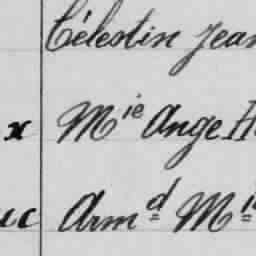 Célestin Jean
x Mie Ange H
uc Armd M